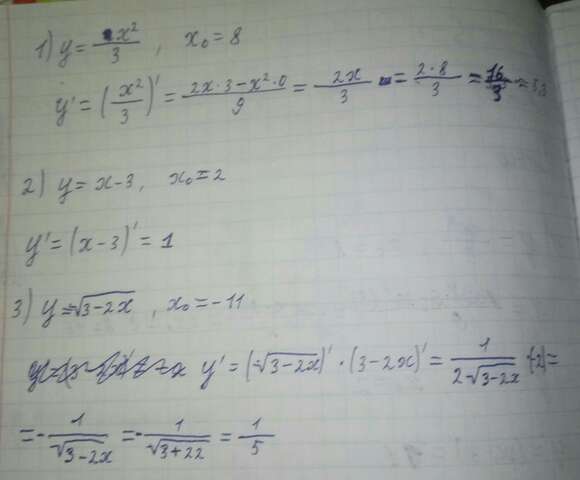 1) y = x²/3 , x₀ = 8
y' = (x²/3)' = (2x·3 − x²·0)/9 = 2x/3 = (2·8)/3 = 16/3
2) y = x-3, x₀ = 2
y' = (x-3)' = 1
3) y = √(3-2x) , x₀ = -11
y' = (√(3-2x))' · (3-2x)' = 1/(2√(3-2x)) · (-2) =
= -1/√(3-2x) = -1/√(3+22) = 1/5